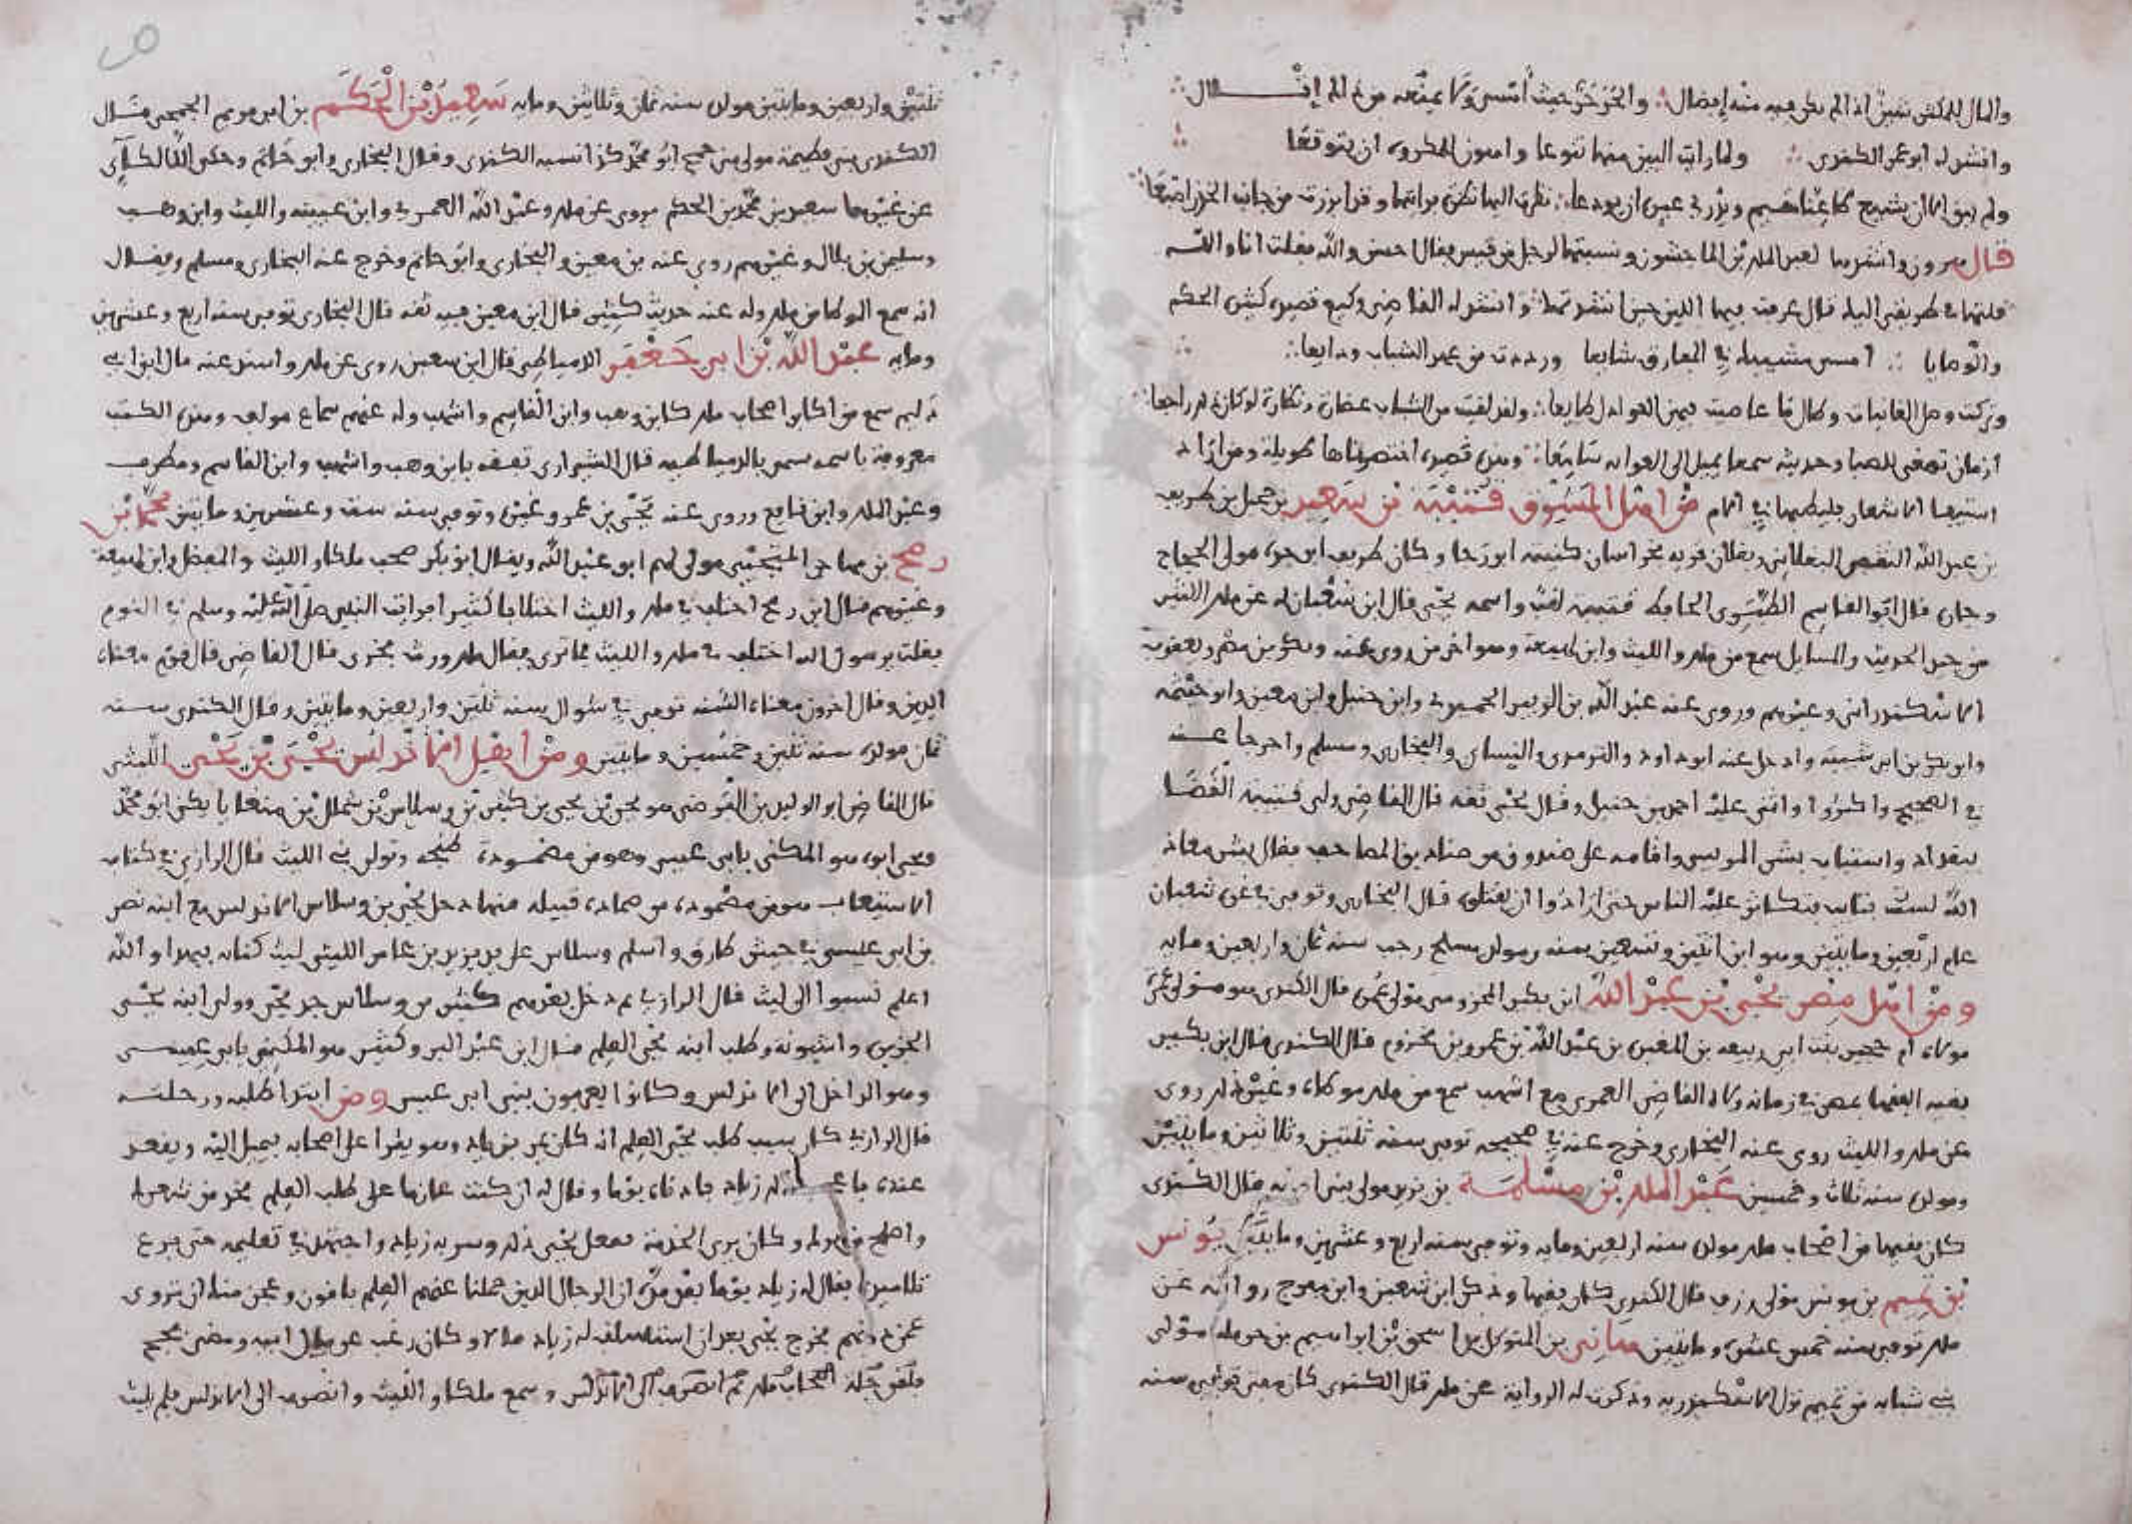 والمال للمكثر شين اذا لم يكن فيه منه إفضال والحر حر حيث أمسى ولا يمنعه من ذلك إقلال
وانشد له ابو عمر الكندي ولما رأيت البين منها تنوعا واهون المكروه ان يتوقعا
ولم يبق الا ان يشيع ظاعنا مقيم ويذري عبرة ان يودعا نظرت اليها نظرة فرأيتها وقد ابرزت من جانب الخدر اصبعا
قال هرون وانشدتها لعبد الملك بن الماجشون ونسبتها لرجل من قيس فقال احسن والله فقلت انا والله
قلتها في طريقي اليك قال عرفت فيها اللين حين انشدتها وانشد له القاضي وكيع قصيدة كثيرة الحكم
والوصايا امسى مشيبك في المفارق شايعا ورددت من عهد الشباب ودايعا
وتركت وصل الغانيات وطال ما عاصيت فيهن العواذل طايعا ولقد لقيت من الشباب غضارة ونضارة لو كان ذلك راجعا
ازمان تصغي للصبا وحديثه سمعا يميل الى الغواية سامعا وهي قصيدة اختصرناها طويلة ومن اراد
استيعاب الاشعار فليطلبها في
ومن اهل المشرق قتيبة بن سعيد بن جميل بن طريف
بن عبد الله الثقفي البغلاني وبغلان قرية بخراسان كنيته ابو رجا وكان طريف ابو جده مولى الحجاج
وجاره قال ابو القاسم الطبري الحافظ قتيبة لقب واسمه يحيى قال ابن شعبان له عن ملك الكثير
من جيد الحديث والمسايل سمع من ملك والليث وابن لهيعة وهو اخر من روى عنه وبكر بن مضر ويعقوب
الاسكندراني وغيرهم وروى عنه عبد الله بن الزبير الحميدي وابن حنبل وابن معين وابو خيثمة
وابو بكر بن ابي شيبة وادخل عنه ابو داود والترمذي والنسائي والبخاري ومسلم واخرجا عنه
في الصحيح واكثرا واثنى عليه احمد بن حنبل وقال يحيى ثقة قال القاضي ولي قتيبة القضا
ببغداد واستتاب بشر المريسي واقامه على صندوق من صناديق المصاحف فقال بشر معاذ
الله لست بتايب فتكاثر عليه الناس حتى ارادوا ان يقتلوه قال البخاري وتوفي في غرة شعبان
عام اربعين ومايتين وهو ابن اثنين وتسعين سنة ومولده ببلخ رجب سنة ثمان واربعين ومايه
ومن اهل مصر يحيى بن عبد الله ابن بكير المخزومي مولى عمرة قال الكندي هو مولى عمرة
مولاة ام حجير بنت ابي ربيعة بن المغيرة بن عبد الله بن عمرو بن مخزوم قال الكندي قال ابن بكير
فقيه الفقها بمصر في زمانه ولاه القاضي العمري مع اشهب سمع من ملك موطاه وغير ذلك روى
عن ملك والليث روى عنه البخاري وخرج عنه في صحيحه توفي سنة ثلثين وثلاثين ومايتين
ومولده سنة ثلاث وخمسين عبد الملك بن مسلمة بن يزيد مولى بني امية قال الكندي
كان فقيها من اصحاب ملك مولده سنة اربعين ومايه وتوفي سنة اربع وعشرين ومايتين يونس
بن تميم بن يونس مولى رزق قال الكندي كان فقيها وذكر ابن شعبان وابن مفرج روايته عن
ملك توفي سنة خمس عشرة ومايتين هانئ بن المتوكل بن اسحق بن ابراهيم بن حرملة مولى
بني شبابة من تميم نزل الاسكندرية وذكرت له الرواية عن ملك قال الكندي كان مفتي توفي سنة
ثلثين واربعين ومايتين مولده سنة ثمان وثلاثين ومايه سعيد بن الحكم بن ابي مريم الجمحي قال
الكندي بني فطيمة مولى بني جمح ابو محمد كذا نسبه الكندي وقال البخاري وابو حاتم وحكى اللالكائي
عن غيرهما سعيد بن محمد بن الحكم يروي عن ملك وعبد الله العمري وابن عيينة والليث وابن وهب
وسليمن بن بلال وغيرهم روى عنه بن معين والبخاري وابو حاتم وخرج عنه البخاري ومسلم ويقال
انه سمع الموطا من ملك وله عنه حديث كثير قال ابن معين فيه ثقة قال البخاري توفي سنة اربع وعشرين
ومايه عبد الله بن ابي جعفر الدمياطي قال ابن شعبان روى عن ملك واسند عنه قال ابن ابي
دليم سمع من اكابر اصحاب ملك كابن وهب وابن القاسم واشهب وله عنهم سماع مولف وهذه الكتب
معروفة باسمه تسمى بالدمياطية قال الشيرازي تفقه بابن وهب واشهب وابن القاسم ومطرف
وعبد الملك وابن نافع وروى عنه يحيى بن عمر وغيره وتوفي سنة ست وعشرين ومايتين محمد بن
رمح بن مهاجر التجيبي مولى لهم ابو عبد الله ويقال ابو بكر صحب ملكا والليث والمفضل وابن لهيعة
وغيرهم قال ابن رمح اختلف في ملك والليث اختلافا كثيرا فرايت النبي صلى الله عليه وسلم في النوم
فقلت يرسول الله اختلف في ملك والليث فما ترى فقال ملك ورث جدي قال القاضي قال قوم معناه
الدين وقال اخرون معناه السنة توفي في شوال سنة ثلثين واربعين ومايتين وقال الكندي سنة
ثمان مولده سنة ثلثين وخمسين ومايتين ومن اهل الاندلس يحيى بن يحيى الليثي
قال القاضي ابو الوليد بن الفرضي هو يحيى بن يحيى بن كثير بن وسلاس بن شملل بن منغايا يكنى ابو محمد
ويحيى ابوه هو المكنى بابي عيسى وهو من مصمودة طنجة وتولى في الليث قال الرازي في كتاب
الاستيعاب هو من مصمودة من صادة قبيلة منها دخل يحيى بن وسلاس الاندلس مع ابنه نصر
بن ابي عيسى في جيش طارق واسلم وسلاس على يد يزيد بن عامر الليثي ليث كنانة فبهذا والله
اعلم نسبوا الى ليث قال الرازي ثم دخل بعدهم كثير بن وسلاس جد يحيى وولي ابنه يحيى
الجزيرة واشبونة وطلب ابنه يحيى العلم قال ابن عبد البر وكثير هو المكنى بابي عيسى
وهو الداخل الى الاندلس وكانوا يعرفون ببني ابي عيسى ومن ابتدا طلبه ورحلته
قال الرازي كان سبب طلب يحيى العلم انه كان يمر بزياد وهو يقرا على اصحابه فيميل اليه ويقعد
عنده فاعجب ذلك زياد فادناه يوما وقال له ان كنت عازما على طلب العلم فخذ من شعرك
واصلح من زيك وكان بزي الخدمة ففعل يحيى ذلك وسر به زياد واجتهد في تعليمه حتى برع
تلاميذه فقال له زياد يوما بعد مدة ان الرجال الذين حملنا عنهم العلم باقون وعجز منك ان تروي
عمن دونهم فخرج يحيى بعد ان استسلف له زياد مالا وكان رغب عن مال ابيه ومضى فحج
ولقي جلة اصحاب ملك ثم انصرف الى الاندلس وسمع ملكا والليث وانصرف الى الاندلس فلم يلبث